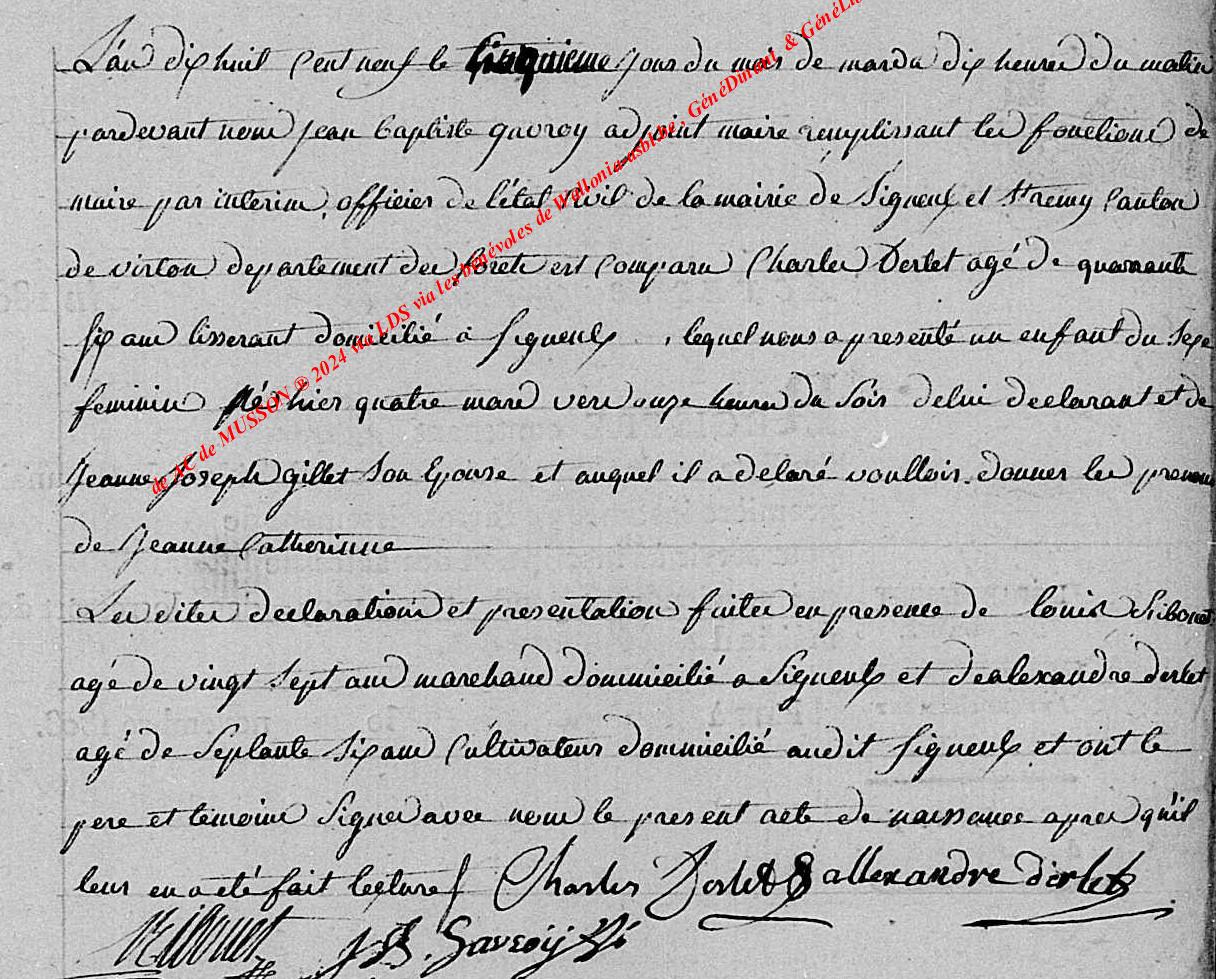 L'an dix huit Cent neuf le Cinquieme jour du mois de mars a dix heures du matin
pardevant nous jean baptiste gavroy adjoint maire remplissant les fonctions de
maire par interim, officier de l'état Civil de la mairie de Signeulx et St remy Canton
de virton departement des forets est Comparu Charles Derlet agé de quarante
six ans tisserant domicilié a signeulx, lequel nous a presenté un enfant du sexe
feminin né hier quatre mars vers onze heures du soir de lui declarant et de
Jeanne Joseph gillet son Epouse et auquel il a delaré voulloir donner les prenoms
de Jeanne Catherinne
Les dites declaration et presentation faites en presence de louis
agé de vingt sept ans marchand dommicilié a Signeulx et de alexandre derlet
agé de Septante Six ans Cultivateur dommicilié audit Signeulx et ont le
pere et temoins Signés avec nous le present acte de naissance apres qu'il
leur en a été fait lecture Charles Derlet allexandre derlet
J B. Gavroy
de AC de MUSSON ® 2024 via LDS via les bénévoles de Wallonia-asbl.be, GénéDinant & GénéLu